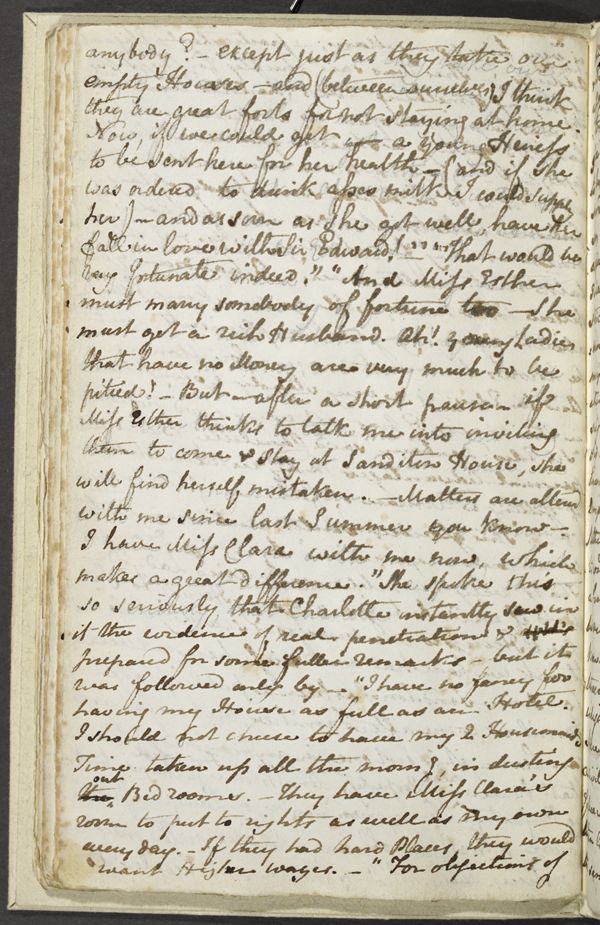 anybody? – except just as they take our
empty Houses – and (between ourselves) I think
they are great fools for not staying at home.
Now, if we could get a young Heiress
to be sent here for her health – (and if she
was ordered to drink asses milk I could supply
her) – and as soon as she got well, have her
fall in love with Sir Edward!" – "That would be
very fortunate indeed." "And Miss Esther
must marry somebody of fortune too – She
must get a rich Husband. Ah! young Ladies
that have no Money are very much to be
pitied! – But – after a short pause – if
Miss Esther thinks to talk me into inviting
them to come & stay at Sanditon House, she
will find herself mistaken. – Matters are altered
with me since last Summer you know –
I have Miss Clara with me now, which
makes a great difference." She spoke this
so seriously that Charlotte instantly saw in
it the evidence of real penetration &
prepared for some fuller remarks – but it
was followed only by – "I have no fancy for
having my House as full as an Hotel.
I should not chuse to have my 2 Housemaids
Time taken up all the morng, in dusting
out Bed rooms. – They have Miss Clara's
room to put to rights as well as my own
every day. – If they had hard Places, they would
want Higher Wages. – "For objections of